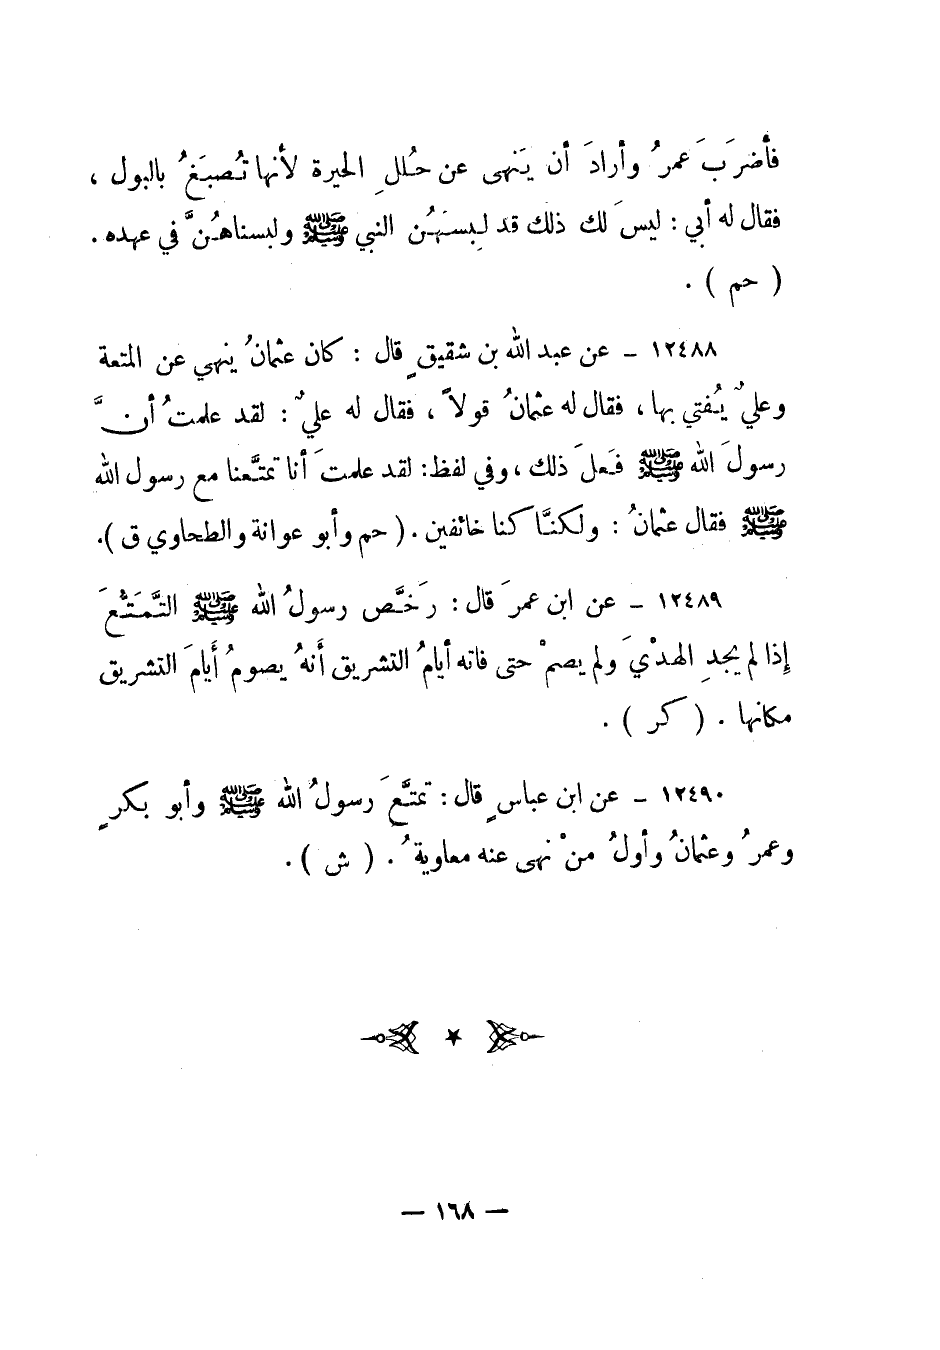 فأضرَبَ عمرُ وأرادَ أن يَنهى عن حُللِ الحيرة لأنها تُصبَغُ بالبول ،
فقال له أبي : ليسَ لك ذلك قد لبِسهُن النبي ﷺ ولبسناهُنَّ في عهده .
( حم ) .
١٢٤٨٨ – عن عبد الله بن شقيقٍ قال : كان عثمانُ ينهي عن المتعة
وعليٌ يُفتي بها ، فقال له عثمانُ قولاً ، فقال له عليٌ : لقد علمتُ أنَّ
رسولَ الله ﷺ فعلَ ذلك ، وفي لفظ : لقد علمتَ أنا تمتَّعنا مع رسول الله
ﷺ فقال عثمانُ : ولكنَّا كنا خائفين . ( حم وأبو عوانة والطحاوي ق ) .
١٢٤٨٩ – عن ابن عمرَ قال : رَخَّص رسولُ الله ﷺ التَّمَتُّعَ
إذا لم يجدِ الهدْيَ ولم يصمْ حتى فاته أيامُ التشريق أَنهُ يصومُ أَيامَ التشريق
مكانها . ( كر ) .
١٢٤٩٠ – عن ابن عباسٍ قال : تمتَّعَ رسولُ الله ﷺ وأبو بكرٍ
وعمرُ وعثمانُ وأولُ منْ نهى عنه معاويةُ . ( ش ) .
— ١٦٨ —